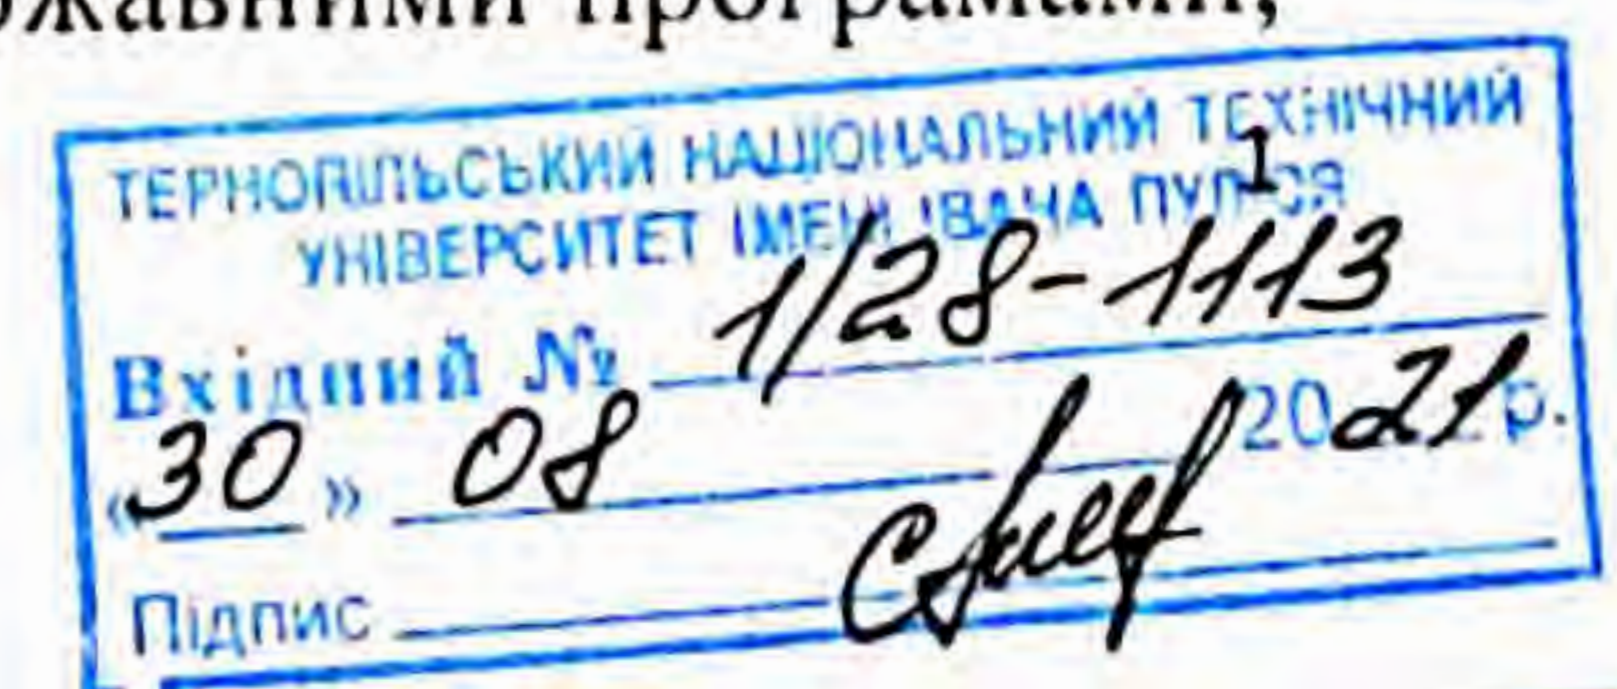 ржавними програмами,
ТЕРНОПІЛЬСЬКИЙ НАЦІОНАЛЬНИЙ ТЕХНІЧНИЙ
1
УНІВЕРСИТЕТ ІМЕНІ ІВАНА ПУЛЮЯ
Вхідний № 1/28-1113
«30» 08 2021 р.
Підпис